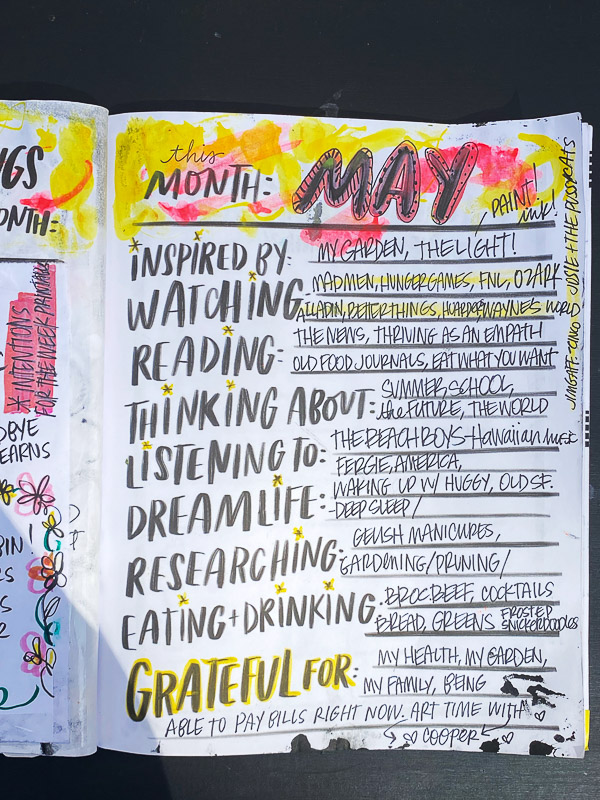 this
MONTH: MAY
PAINT!
ink!
INSPIRED BY: MY GARDEN, THE LIGHT!
WATCHING: MAD MEN, HUNGER GAMES, FNL, OZARK
BETTER THINGS, WAYNE'S WORLD
SUSIE + THE PUSSYCATS
READING: THE NEWS, THRIVING AS AN EMPATH
OLD FOOD JOURNALS, EAT WHAT YOU WANT
THINKING ABOUT: SUMMER SCHOOL,
the FUTURE, THE WORLD
LISTENING TO: THE BEACH BOYS - Hawaiian Music
FERGIE, AMERICA,
DREAM LIFE: WAKING UP W/ HUGGY, OLD SF.
-DEEP SLEEP/
RESEARCHING: GELISH MANICURES,
GARDENING/PRUNING/
EATING + DRINKING: BROC BEEF, COCKTAILS
BREAD, GREENS, FROSTED
SNICKERDOODLES
GRATEFUL FOR: MY HEALTH, MY GARDEN,
MY FAMILY, BEING
ABLE TO PAY BILLS RIGHT NOW. ART TIME WITH
COOPER
NGS
MONTH:
* INTENTIONS
FOR THE WEEK PRINTABLE